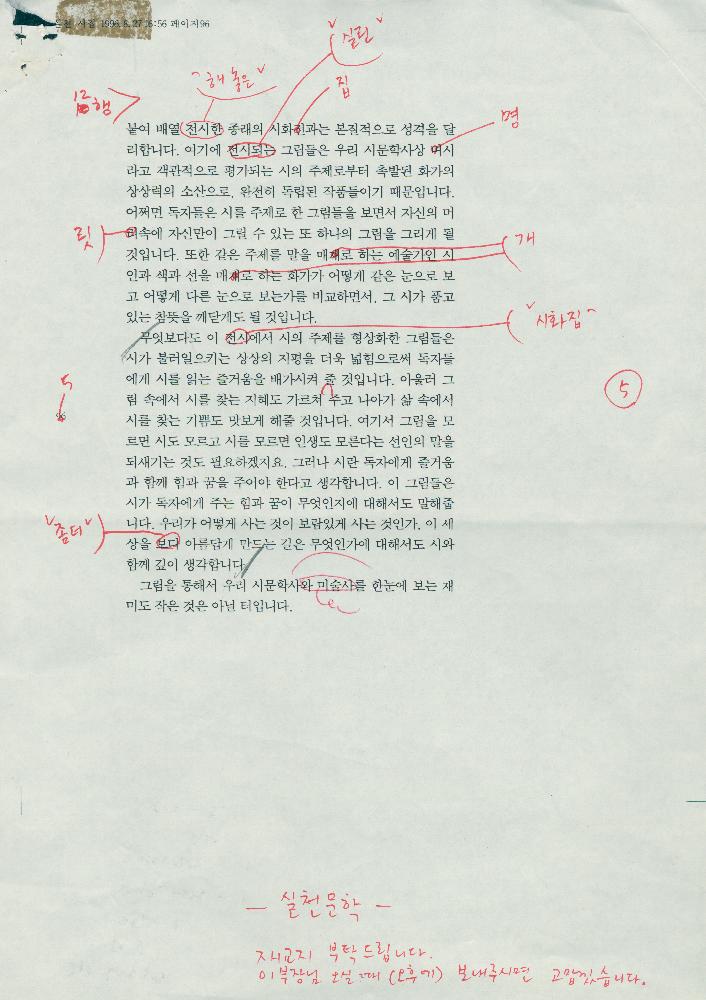 1996.8.27 16:56 페이지96
"실린"
"해 놓은"
집
12행
명
붙여 배열 전시한 종래의 시화전과는 본질적으로 성격을 달
리합니다. 여기에 전시되는 그림들은 우리 시문학사상
라고 객관적으로 평가되는 시의 주제로부터 촉발된 화가의
상상력의 소산으로, 완전히 독립된 작품들이기 때문입니다.
어쩌면 독자들은 시를 주제로 한 그림들을 보면서 자신의 머
릿
속에 자신만이 그릴 수 있는 또 하나의 그림을 그리게 될
개
것입니다. 또한 같은 주제를 말을 매재로 하는 예술가인 시
인과 색과 선을 매재로 하는 화가가 어떻게 같은 눈으로 보
고 어떻게 다른 눈으로 보는가를 비교하면서, 그 시가 품고
있는 참뜻을 깨닫게도 될 것입니다.
"시화집"
무엇보다도 이 전시에서 시의 주제를 형상화한 그림들은
시가 불러일으키는 상상의 지평을 더욱 넓힘으로써 독자들
에게 시를 읽는 즐거움을 배가시켜 줄 것입니다. 아울러 그
5
5
림 속에서 시를 찾는 지혜도 가르쳐 주고 나아가 삶 속에서
시를 찾는 기쁨도 맛보게 해줄 것입니다. 여기서 그림을 모
르면 시도 모르고 시를 모르면 인생도 모른다는 선인의 말을
되새기는 것도 필요하겠지요. 그러나 시란 독자에게 즐거움
과 함께 힘과 꿈을 주어야 한다고 생각합니다. 이 그림들은
시가 독자에게 주는 힘과 꿈이 무엇인지에 대해서도 말해줍
니다. 우리가 어떻게 사는 것이 보람있게 사는 것인가, 이 세
"좀더"
상을 보다 아름답게 만드는 길은 무엇인가에 대해서도 시와
함께 깊이 생각합니다.
그림을 통해서 우리 시문학사와 미술사를 한눈에 보는 재
미도 작은 것은 아닐 터입니다.
— 실천문학 —
재교지 부탁드립니다.
이부장님 오실 때 (오후에) 보내주시면 고맙겠습니다.